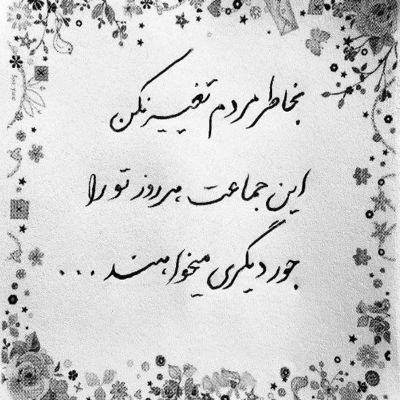 بخاطر مردم تغییر نکن
این جماعت هر روز تو را
جور دیگری میخواهند ...